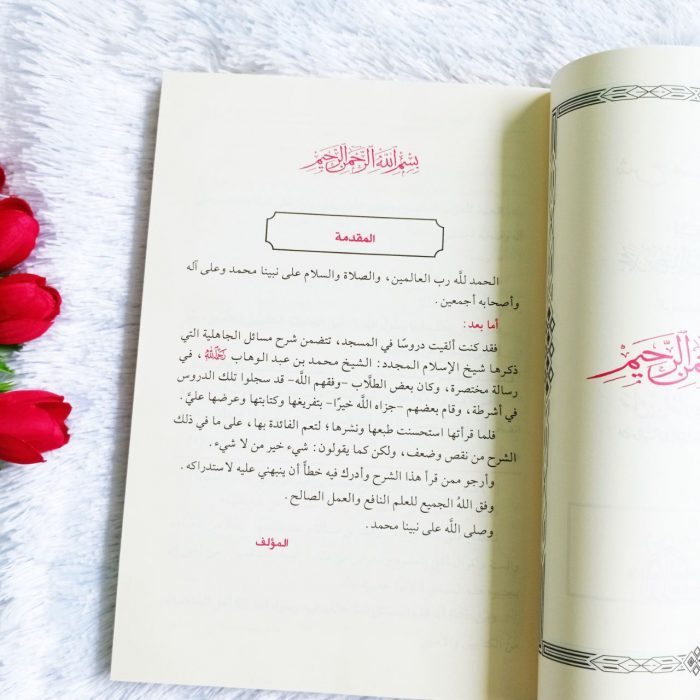 بسم الله الرحمن الرحيم
المقدمة
الحمد للَّه رب العالمين، والصلاة والسلام على نبينا محمد وعلى آله
وأصحابه أجمعين.
أما بعد:
فقد كنت ألقيت دروسًا في المسجد، تتضمن شرح مسائل الجاهلية التي
ذكرها شيخ الإسلام المجدد: الشيخ محمد بن عبد الوهاب رحمه الله، في
رسالة مختصرة، وكان بعض الطلَّاب -وفقهم اللَّه- قد سجلوا تلك الدروس
في أشرطة، وقام بعضهم -جزاه اللَّه خيرًا- بتفريغها وكتابتها وعرضها عليَّ.
فلما قرأتها استحسنت طبعها ونشرها؛ لتعم الفائدة بها، على ما في ذلك
الشرح من نقص وضعف، ولكن كما يقولون: شيء خير من لا شيء.
وأرجو ممن قرأ هذا الشرح وأدرك فيه خطأً أن ينبهني عليه لاستدراكه.
وفق اللهُ الجميع للعلم النافع والعمل الصالح.
وصلى اللَّه على نبينا محمد.
المؤلف
من الرحيم